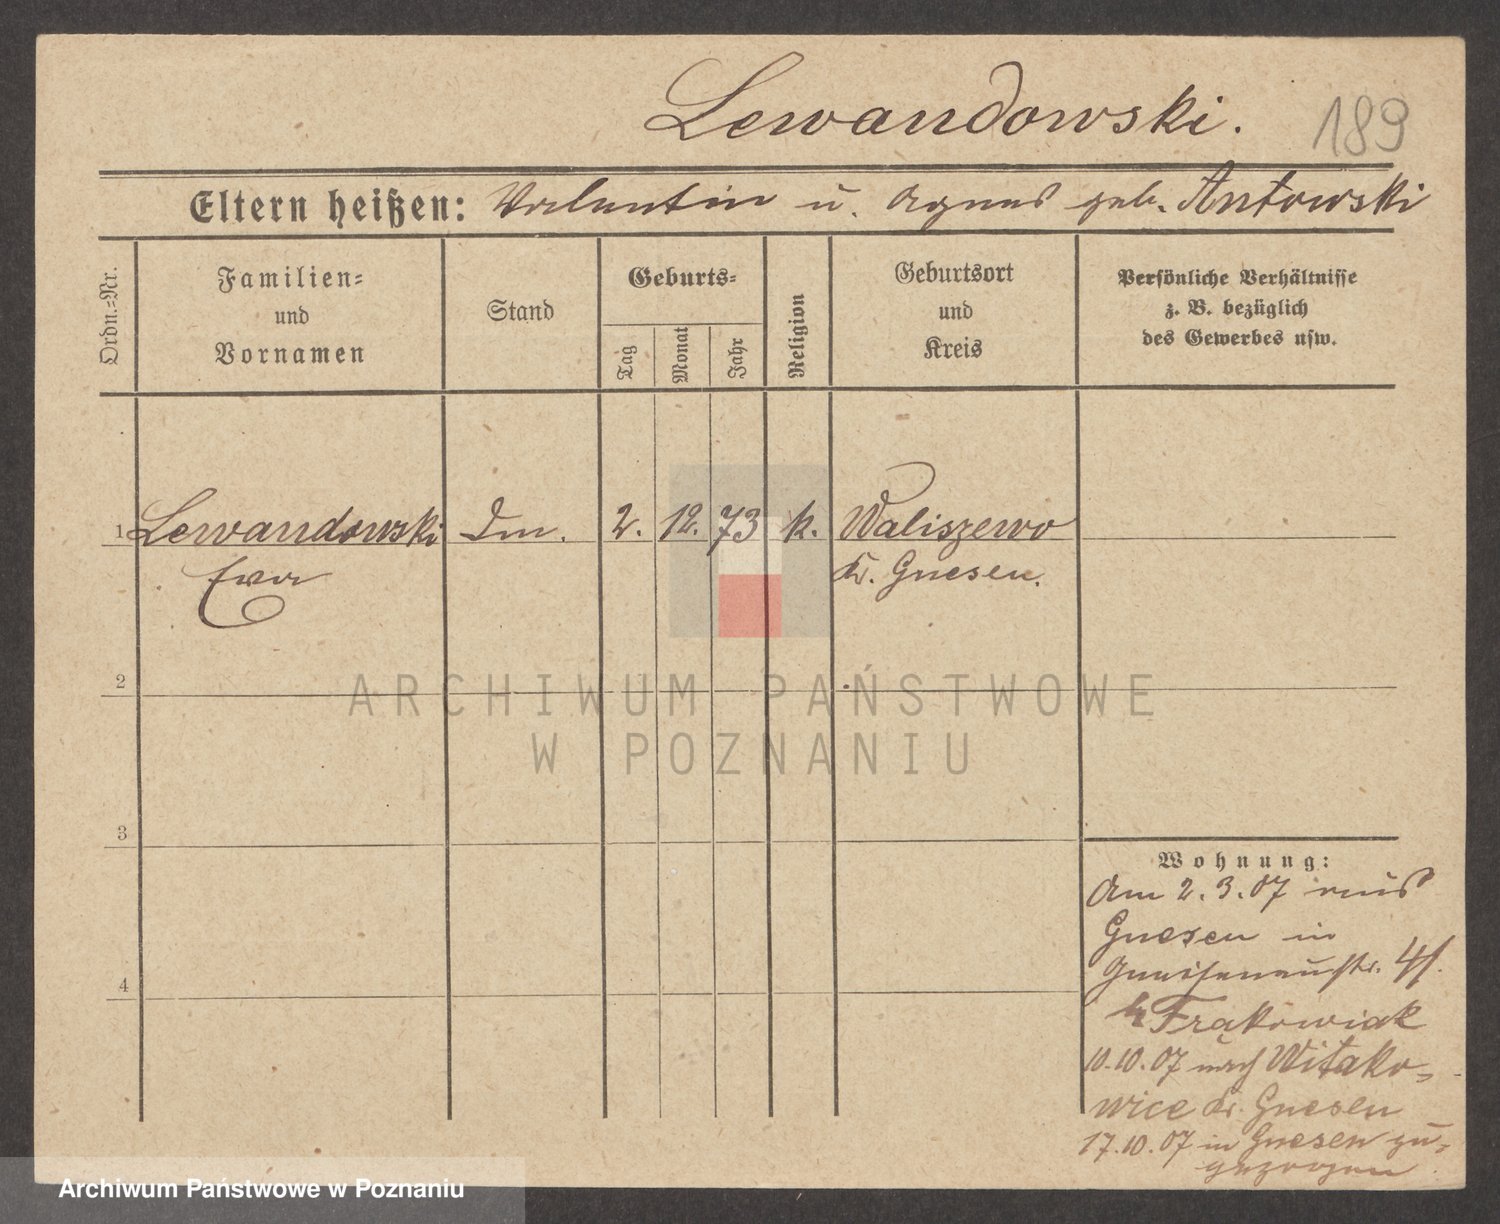 Lewandowski.
189
Eltern heißen: Valentin u. Agnes geb. Antowski
Ordn.-Nr.
Familien-
und
Vornamen
Stand
Geburts-
Tag
Monat
Jahr
Religion
Geburtsort
und
Kreis
Persönliche Verhältnisse
z. B. bezüglich
des Gewerbes usw.
1 Lewandowski 2. 12. 73 k. Waliszewo
Eva Kr. Gnesen.
2
ARCHIWUM PAŃSTWOWE
W POZNANIU
3
4
Wohnung:
Am 2.3.07 aus
Gnesen in
Gneisenaustr.
Frąkowiak
10.10.07 nach Witako-
wice Kr. Gnesen
17.10.07 in Gnesen zu-
gezogen
Archiwum Państwowe w Poznaniu